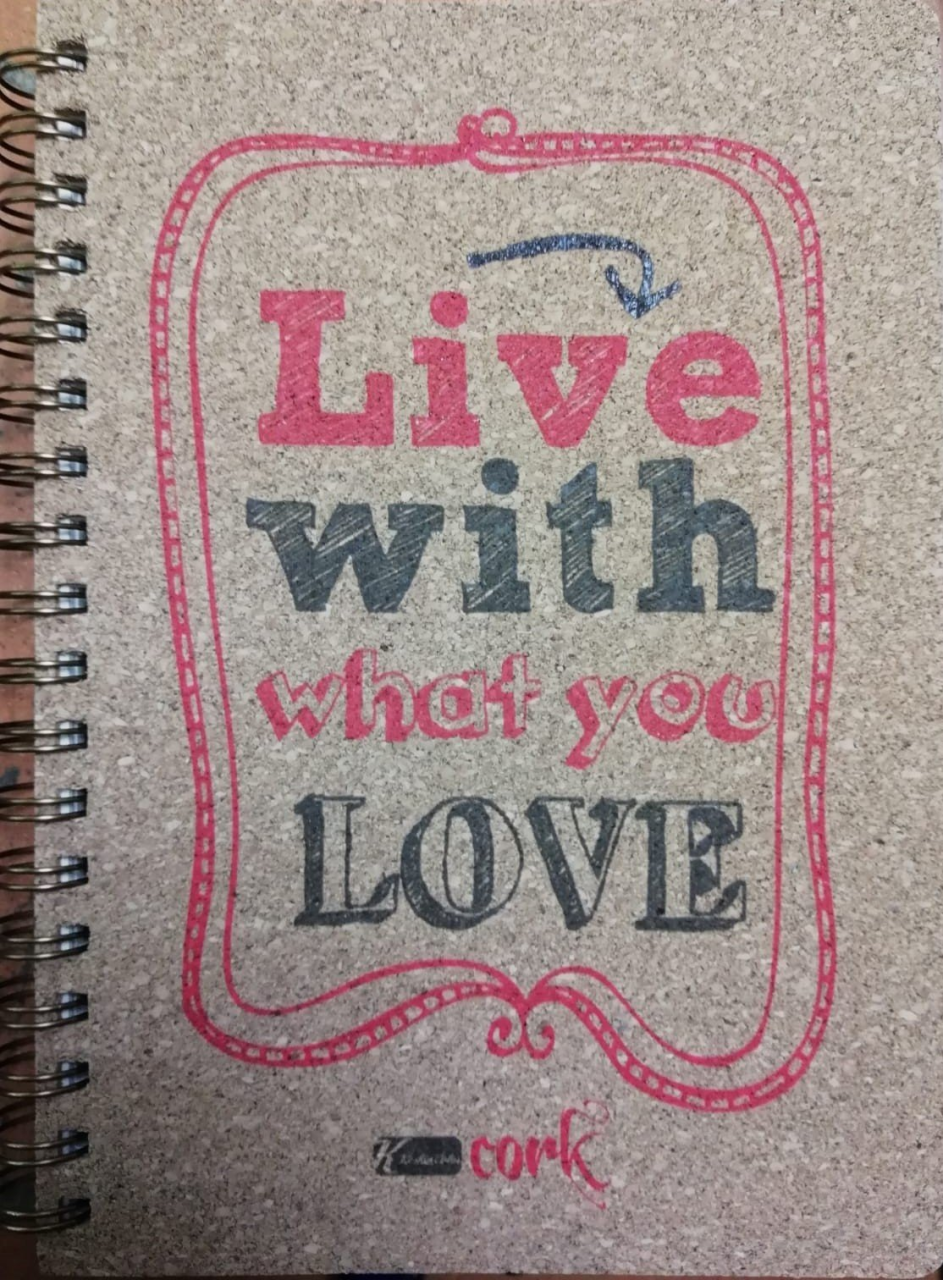 Live
with
what you
LOVE
cork